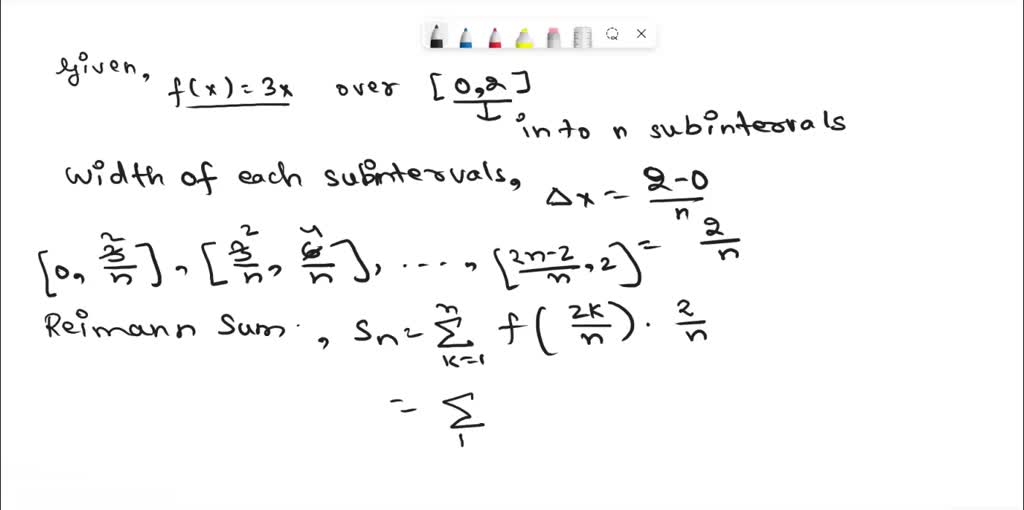 Given, f(x) = 3x over [0,2]
into n subintervals
width of each subintervals, Δx = 2-0/n
[0, 2/n], [2/n, 4/n], ...., [2n-2/n, 2] = 2/n
Reimann Sum, Sn = n∑k=1 f(2k/n) · 2/n
= ∑1